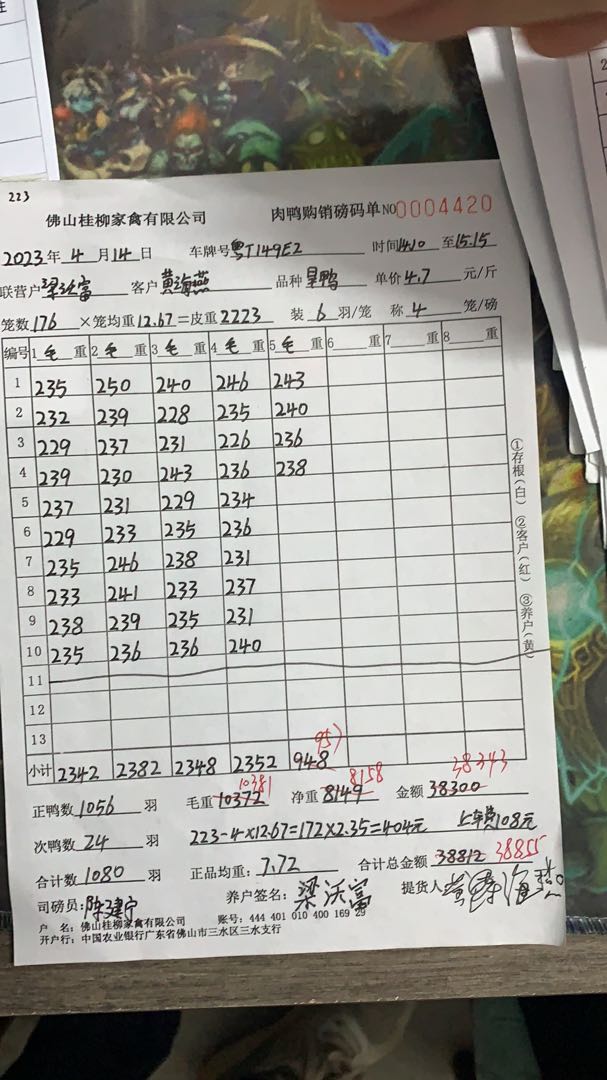 223
佛山桂柳家禽有限公司 肉鸭购销磅码单 NO 0004420
2023年 4 月 14 日 车牌号 粤T149E2 时间 14.10 至 15.15
联营户 梁沃富 客户 黄海燕 品种 旱鸭 单价 4.7 元/斤
笼数 176 ×笼均重 12.67 =皮重 2223 装 6 羽/笼 称 4 笼/磅
编号 1 毛 重 2 毛 重 3 毛 重 4 毛 重 5 毛 重 6 重 7 重 8 重
1 235 250 240 246 243
2 232 239 228 235 240
3 229 237 231 226 236
4 239 230 243 236 238
5 237 231 229 234
6 229 233 235 236
7 235 246 238 231
8 233 241 233 237
9 238 239 235 231
10 235 236 236 240
11
12
13
957
小计 2342 2382 2348 2352 948
10381 8158 38343
正鸭数 1056 羽 毛重 10372 净重 8149 金额 38300
次鸭数 24 羽 223-4×12.67=172×2.35=404元 上车费108元
合计数 1080 羽 正品均重: 7.72 合计总金额 38812 38855
司磅员: 陈建宁 养户签名: 梁沃富 提货人 黄海燕
户 名: 佛山桂柳家禽有限公司 账号: 444 401 010 400 169 29
开户行: 中国农业银行广东省佛山市三水区三水支行
①存根(白) ②客户(红) ③养户(黄)